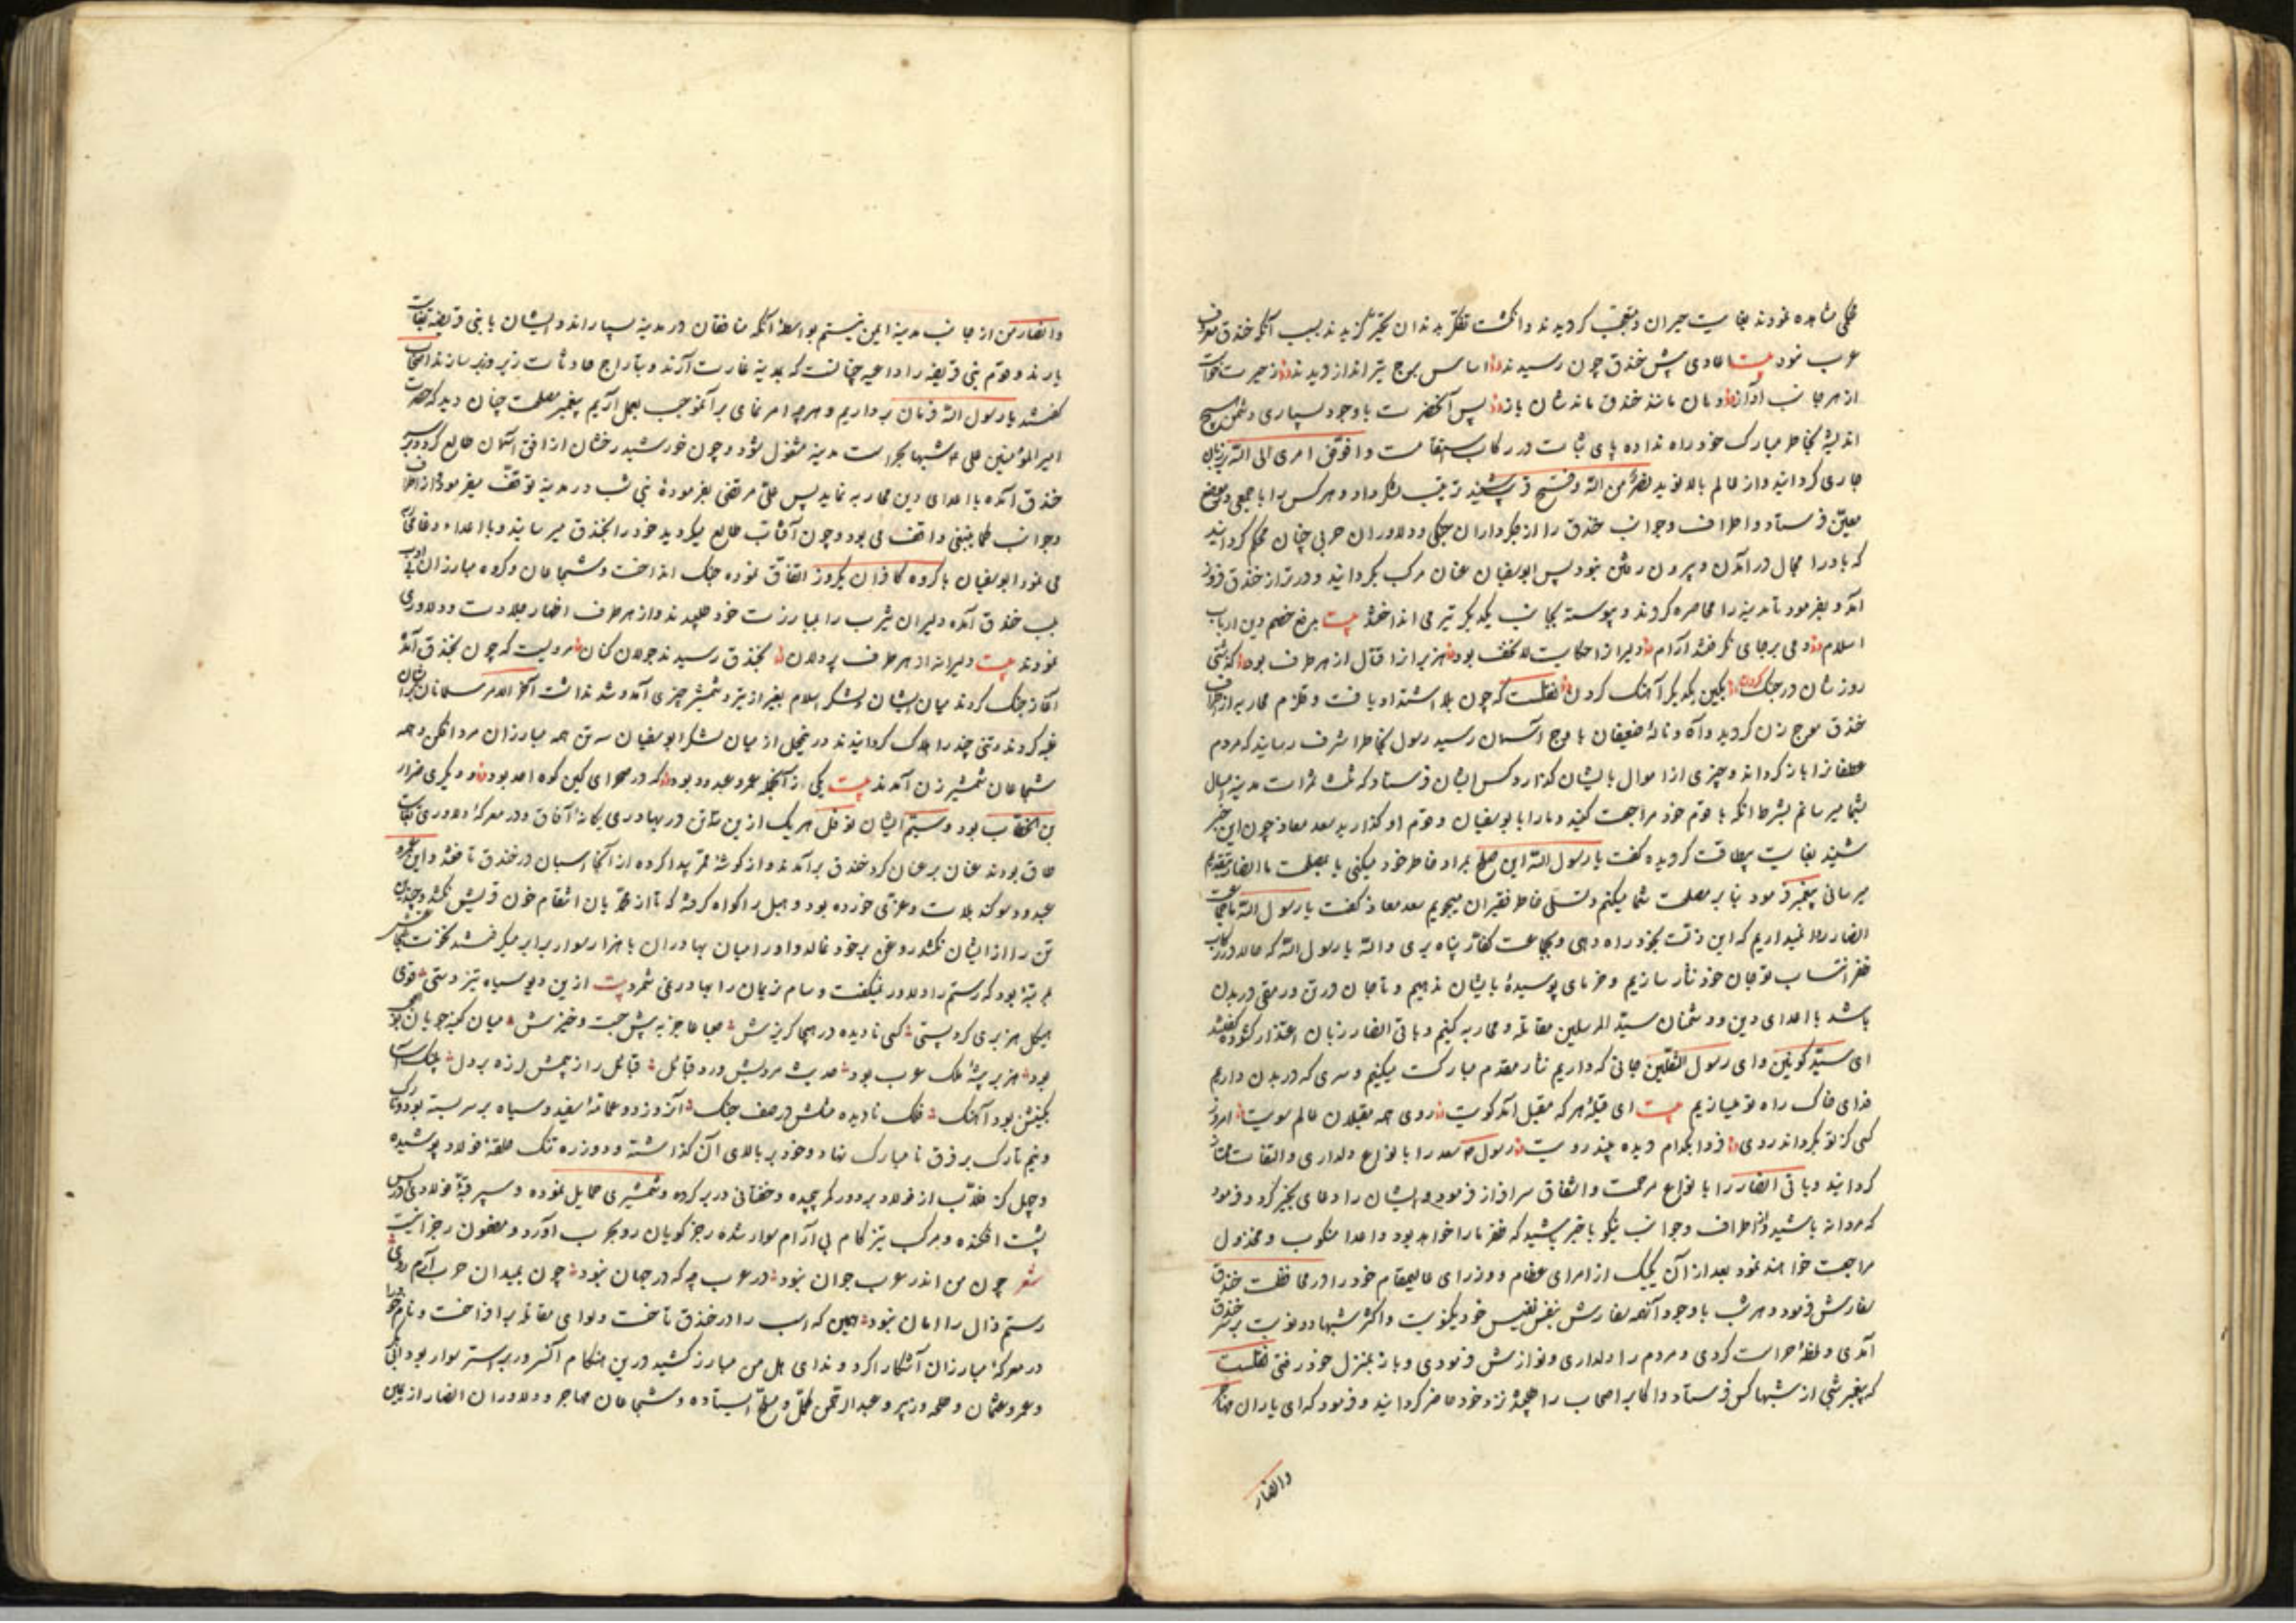 خلقی مشاهده نمودند بغایت حیران و متعجب کردیدند و انکشت تفکر بدندان تحیر کزیدند بسبب آنکه خندق معروف
عرب نبود بیت اعادی پیش خندق چون رسیدند اساس برج تیرانداز دیدند ز حیرت
از هر جانب آواز دهان مانند خندق ماندشان باز پس آنحضرت با وجود بسیاری دشمن هیچ
اندیشه بخاطر مبارک خود راه نداده پای ثبات در رکاب استقامت و افوض امری الی الله بر زبان
جاری کردانید و از عالم بالا نوید نصر من الله و فتح قریب شنید ترتیب لشکر داد و هر کس را با جمعی بموضع
معین فرستاد و اطراف و جوانب خندق را از جکرداران جنکی و دلاوران حربی چنان محکم کردانید
که باد را مجال در آمدن و بیرون رفتن نبود پس ابوسفیان عنان مرکب بکردانید و دورتر از خندق فرود
آمد و بفرمود تا مدینه را محاصره کردند و پیوسته بجانب یکدیکر تیر می انداختند بیت برفع خصم دین ارباب
اسلام دمی بر جای نکرفتند آرام دلیر از حکایت لا تخف بود هزیر از اقتال از هر طرف بود که تنی
روزشان در جنک کردن بکین یکدیکر آهنک کردن نقلست که چون بلا اشتداد یافت و قلزم محاربه از اطراف
خندق موج زن کردید و آه و ناله ضعیفان باوج آسمان رسید رسول بخاطر اشرف رسانید که مردم
غطفانرا باز کرداند و چیزی از اموال بایشان کذارد کس بایشان فرستاد که ثلث ثمرات مدینه امسال
بشما میرسانم بشرط آنکه با قوم خود مراجعت کنید و مارا با بوسفیان و قوم او کذارید سعد معاذ چون این خبر
شنید بغایت بیطاقت کردیده کفت یا رسول الله این صلح بمراد خاطر خود میکنی یا بمصلحت ما انصار بتقدیم
میرسانی پیغمبر فرمود بنابر مصلحت شما میکنم و تسلی خاطر فقیران میجویم سعد معاذ کفت یا رسول الله ما جماعت
انصار روا نمیداریم که این ذلت بخود راه دهی و بجماعت کفار پناه بری و الله یا رسول الله که حالا در رکاب
ظفر انتساب تو جان خود نثار سازیم و خرمای پوسیده بایشان ندهیم و تا جان در تن و رمقی در بدن
باشد با اعدای دین و دشمنان سید المرسلین مقاتله و محاربه کنیم و باقی انصار زبان اعتذار کشوده کفتند
ای سید کونین و ای رسول الثقلین جانی که داریم نثار مقدم مبارکت میکنیم و سری که در بدن داریم
فدای خاک راه تو میسازیم بیت ای قبله هر که مقبل آمد کویت روی همه مقبلان عالم سویت امروز
کسی کز تو بکرداند روی فردا بکدام دیده بیند رویت رسول سعد را بانواع دلداری و التفات ممتاز
کردانید و باقی انصار را بانواع مرحمت و اشفاق سرافراز فرمود و ایشان را دعای بخیر کرد و فرمود
که مردانه باشید و از اطراف و جوانب نیکو با خبر باشید که ظفر مارا خواهد بود و اعدا منکوب و مخذول
مراجعت خواهند نمود بعد از آن یکیک از امرای عظام و وزرای عالیمقام خود را در محافظت خندق
سفارش فرمود و هر شب با وجود آنهمه سفارش بنفس نفیس خود یکنوبت و اکثر شبها دو نوبت بر سر خندق
آمدی و لحظه حراست کردی و مردم را دلداری و نوازش فرمودی و باز بمنزل خود رفتی نقلست
که پیغمبر شبی از شبها کس فرستاد و اکابر اصحاب را طلبیده نزد خود حاضر کردانید و فرمود که ای یاران مهاجر
و انصار
و انصار من از جانب مدینه ایمن نیستم بواسطه آنکه منافقان در مدینه بسیاراند و ایشان با بنی قریظه
یارند و قوم بنی قریظه را داعیه چنانست که بمدینه غارت آرند و بتاراج حادثات زیر و زبر سازند اصحاب
کفتند یا رسول الله فرمان برداریم و هر چه امر نمای بر آنموجب بعمل آریم پیغمبر مصلحت چنان دید که حضرت
امیر المؤمنین علی شبها بحراست مدینه مشغول شود و چون خورشید رخشان از افق آسمان طالع کردد بر سر
خندق آمده با اعدای دین محاربه نماید پس علی مرتضی بفرموده نبی شب در مدینه توقف میفرمود و از اطراف
و جوانب کما ینبغی واقف می بود و چون آفتاب طالع میکردید خود را بخندق میرسانید و با اعداء دغا
می نمود ابوسفیان با کروه کافران یکروز اتفاق نموده جنک انداخت و شجاعان و کروه مبارزان
بلب خندق آمده دلیران یثرب را بمبارزت خود طلبیدند و از هر طرف اظهار جلادت و دلاوری
نمودند بیت دلیرانه از هر طرف پردلان بخندق رسیدند جولان کنان مرویست که چون بخندق آمدند
آغاز جنک کردند میان ایشان و لشکر اسلام بغیر از تیر و شمشیر چیزی آمد و شد نداشت آخر الامر مسلمانان برایشان
غلبه کردند و تنی چند را هلاک کردانیدند در نیحال از میان لشکر ابوسفیان سه تن همه مبارزان مرد افکن و همه
شجاعان شمشیر زن آمدند بیت یکی ز آنجمله عمرو عبدود بود که در صحرای کین کوه احد بود و دیکری ضرار
بن الخطاب بود و سیم ایشان نوفل هر یک ازین سه تن در بهادری یکانه آفاق و در معرکه دلاوری
طاق بودند عنان بر عنان کرد خندق بر آمدند و از کوشه ممر پیدا کرده از آنجا اسبان در خندق تاختند و این عمرو
عبدود سوکند بلات و عزی خورده بود و هبل را کواه کرفته که تا از محمدیان انتقام خون قریش نکشد و چندین
تن را از ایشان نکشد روغن بر خود نمالد و او را میان بهادران با هزار سوار برابر میکرفتند نخوت
بمرتبه بود که رستم را دلاور نمیکفت و سام نریمان را بهادر نمی شمرد بیت ازین دیو سیاه تیز دستی قوی
هیکل هزبری کرد پستی کسی نادیده در هیجا کریزش صبا عاجز به پیش جست و خیزش میان کینه جویان
بود هزبر بیشه ملک عرب بود حدیث مردیش ورد قبایل قبایل را ز چمش لرزه بر دل بجنک
بکینش بود آهنک فلک نادیده مثلش در صف جنک آنروز دو عمامه سفید و سیاه بر سر بسته بود و تا
و نیم تارک بر فرق نامبارک نهاد و خود بر بالای آن کذاشته و دو زره تنک حلقه فولاد پوشیده
و چهل کز قلاب از فولاد بر دور کمر پیچیده و خفتانی در بر کرده و شمشیری حمایل نموده و سپر قبه فولادی در پس
پشت افکنده و بر مرکب تیز کام بی آرام سوار شده رجز کویان رو بحرب آورد و مضمون رجز اینست
شعر چون من اندر عرب جوان نبود در عرب چه که در جهان نبود چون بمیدان حرب آرم روی
رستم زال را امان نبود همین که اسب را در خندق تاخت و لوای مقاتله برافراخت و نام خود را
در معرکه مبارزان آشکارا کرد و ندای هل من مبارز کشید درین هنکام آنسرور بر استر سوار بود
و عمر و عثمان و طلحه و زبیر و عبدالرحمن مکمل و مسلح ایستاده و شجاعان مهاجر و دلاوران انصار از یمین